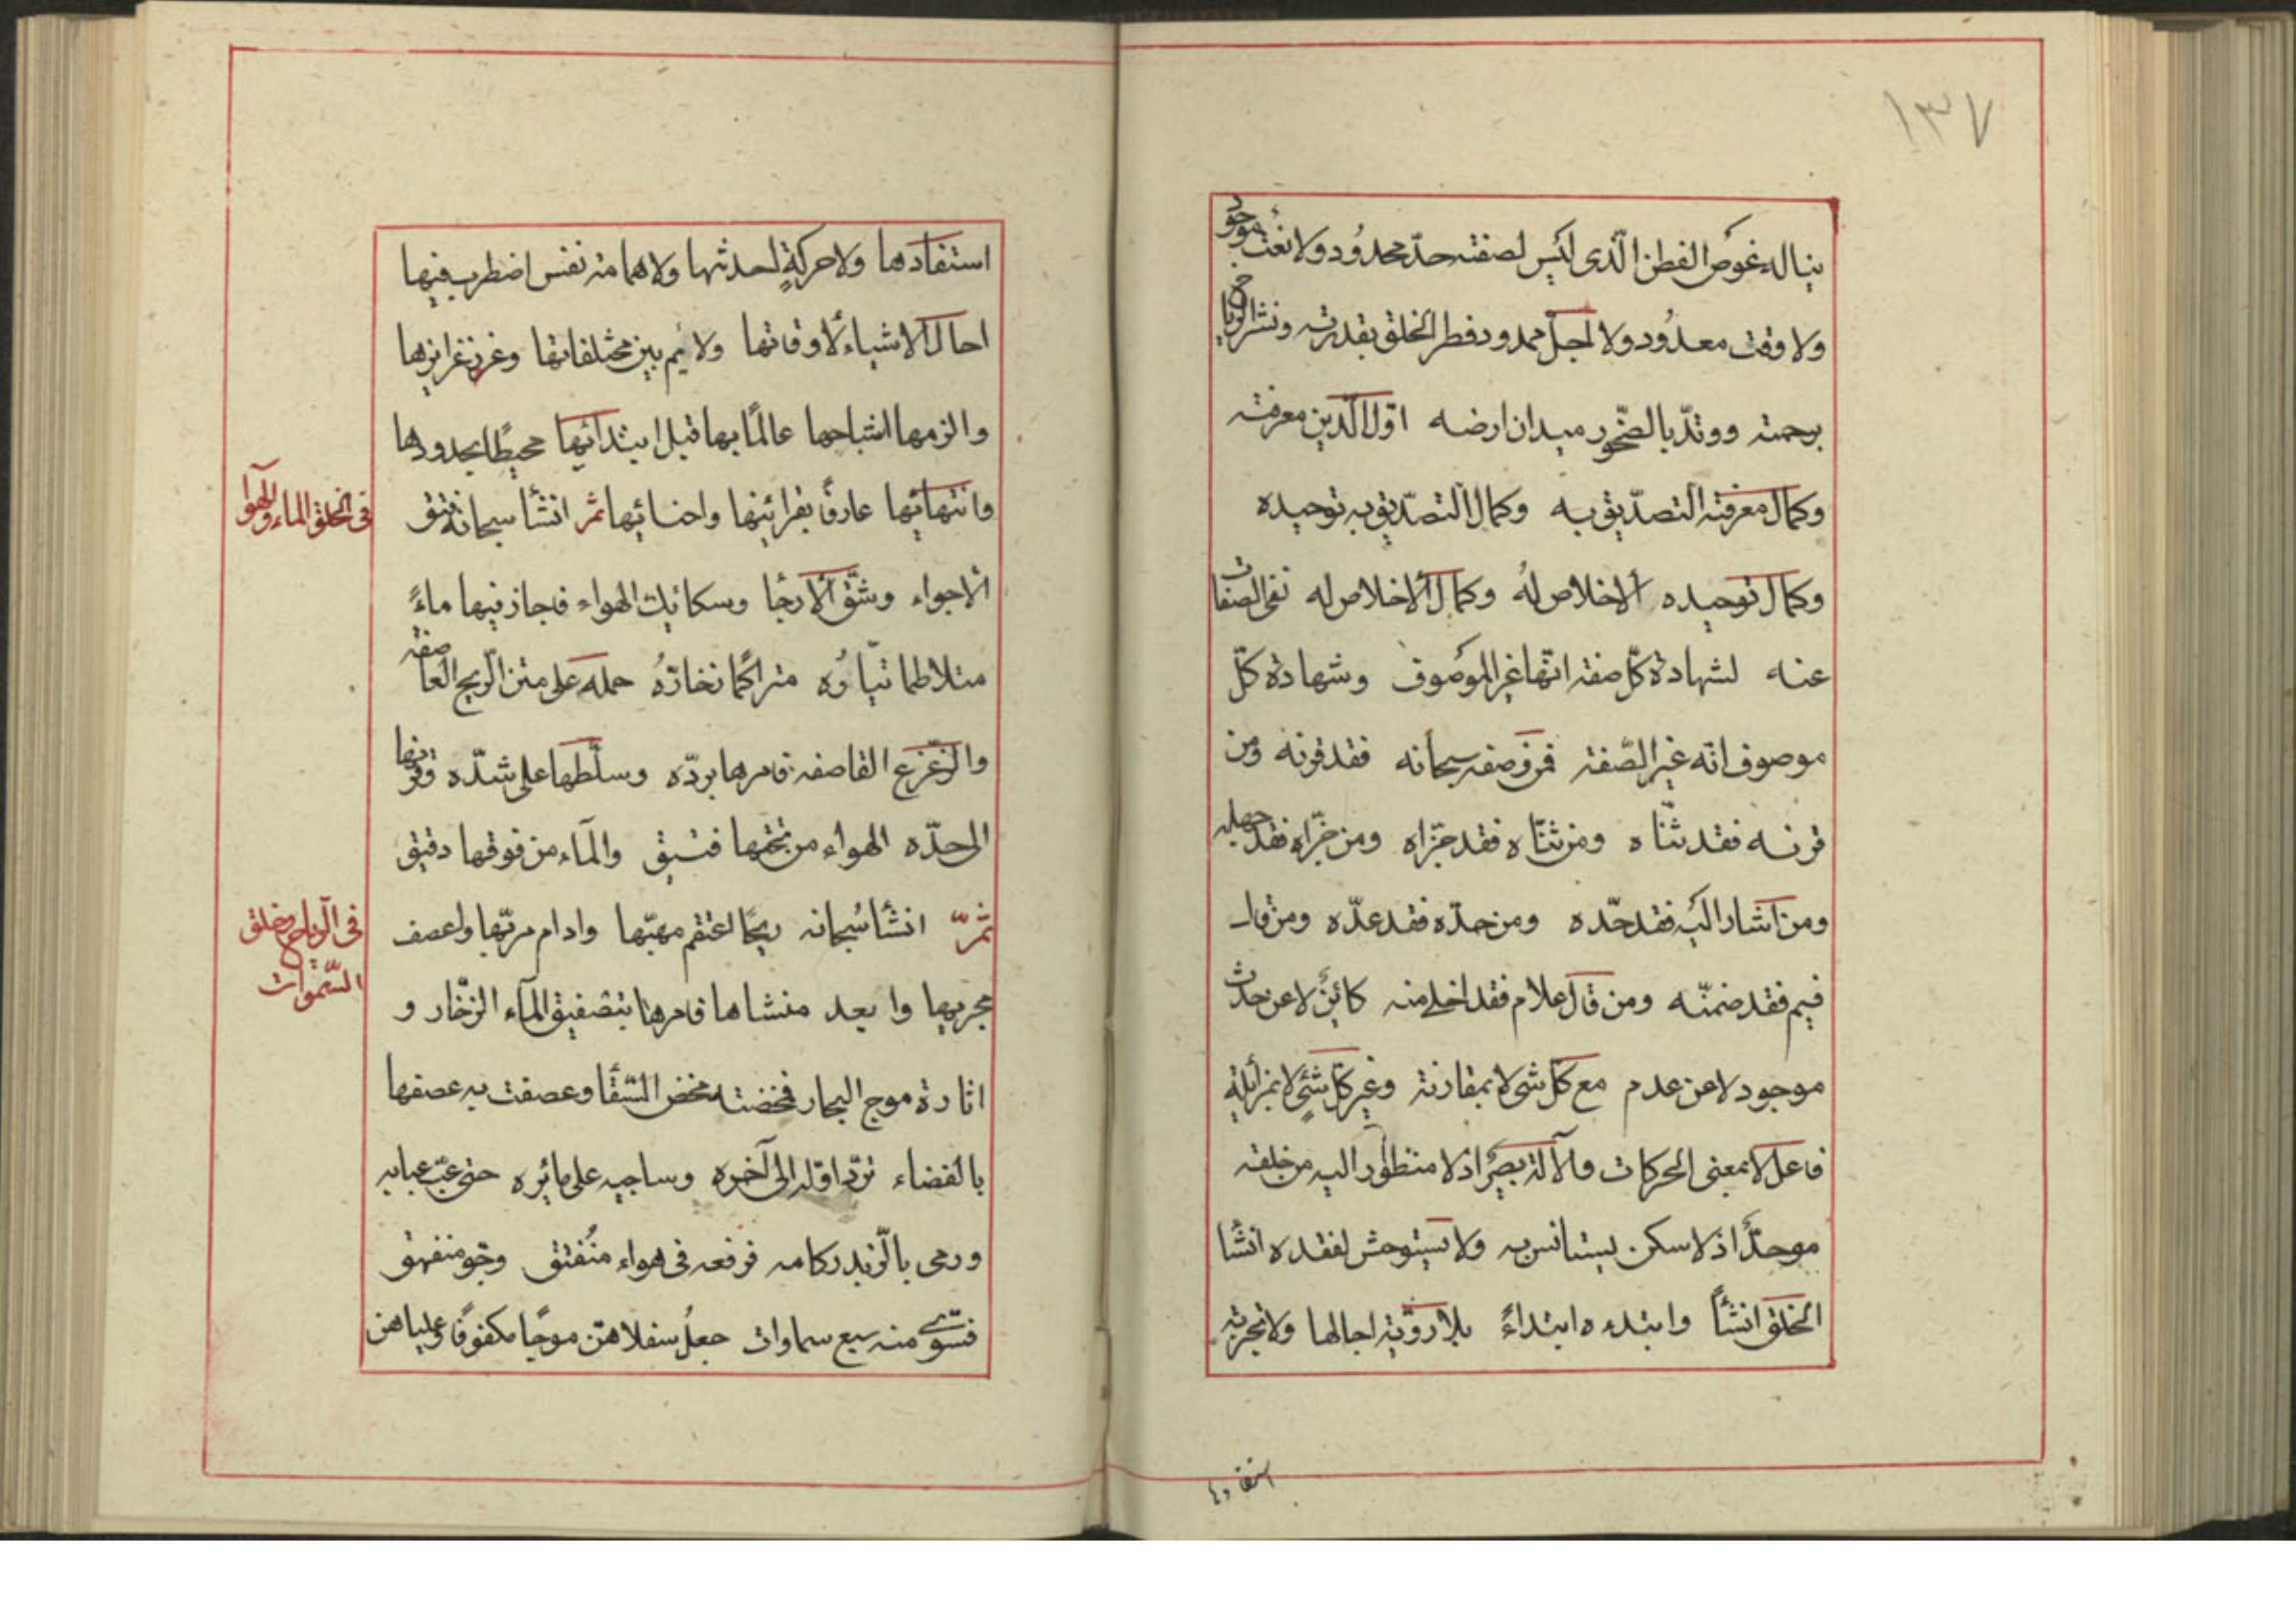 ١٣٧
يناله غوص الفطن الّذى ليس لصفته حدّ محدود ولا نعت موجود
ولا وقت معدُود ولا اجل ممدود فطر الخلق بقدرته ونشر الرياح
برحمته ووتدّ بالصّخور ميدان ارضه اوّل الدّين معرفته
وكمال معرفته التصدّيق به وكمال التصدّيق به توحيده
وكمال توحيده الاخلاص لهُ وكمال الاخلاص له نفى الصفات
عنه لشهادة كلّ صفه انّها غير الموصوف وشهادة كلّ
موصوف انّه غير الصّفة فمن وصفه سبحانه فقد قرنه ومن
قرنه فقد ثنّاه ومن ثنّاه فقد جزّاه ومن جزّاه فقد جهله
ومن اشار اليه فقد حدّه ومن حدّه فقد عدّه ومن قال
فيم فقد ضمنّه ومن قال علام فقد اخلى منه كائن لا عن حدث
موجود لا عن عدم مع كلّ شى لا بمقارنة وغير كلّ شئٍ لا بمزايلةٍ
فاعل لا بمعنى الحركات والآلة بصير اذ لا منظور اليه من خلقه
موحدّ اذ لا سكن يستانس به ولا يستوحش لفقده انشا
الخلق انشاً وابتدءه ابتداءً بلا رويّة اجالها ولا تجربة
استفادها
استفادها ولا حركةٍ احدثها ولا همامة نفس اضطرب فيها
احال الاشياء لاوقاتها ولايم بين مختلفاتها وغرز غرايزها
والزمها اشباحها عالمًا بها قبل ابتدائها محيطًا بحدودها
وانتهائها عارفًا بقرائنها واحنائها ثمّ انشأ سبحانه فتق
الاجواء وشقّ الارجا وسكائك الهواء فاجاز فيها ماءً
متلاطما تيّاره متراكمًا زخاره حمله على متن الرّيح العاصفه
والزّعزع القاصفه فامرها بردّه وسلّطها على شدّه وقرنها
الى حدّه الهواء من تحتها فتيق والمآء من فوقها دفيق
ثمّ انشأ سُبحانه ريحًا اعتقم مهبّها وادام مربّها واعصف
مجريها وابعد منشاها فامرها بتصفيق المآء الزخّار و
اثارة موج البحار فمخضته مخض السّقا وعصفت به عصفها
بالفضاء تردّ اوّله الى آخره وساجيه على مائره حتى عبّ عبابه
ورمى بالزّبد ركامه فرفعه فى هواء منُفتق وجّو منفهق
فسّوى منه سبع سماوات جعل سفلاهنّ موجًا مكفوفًا وعلياهن
فى الخلق الماء والهوا
فى الرياح وخلق
السّموات